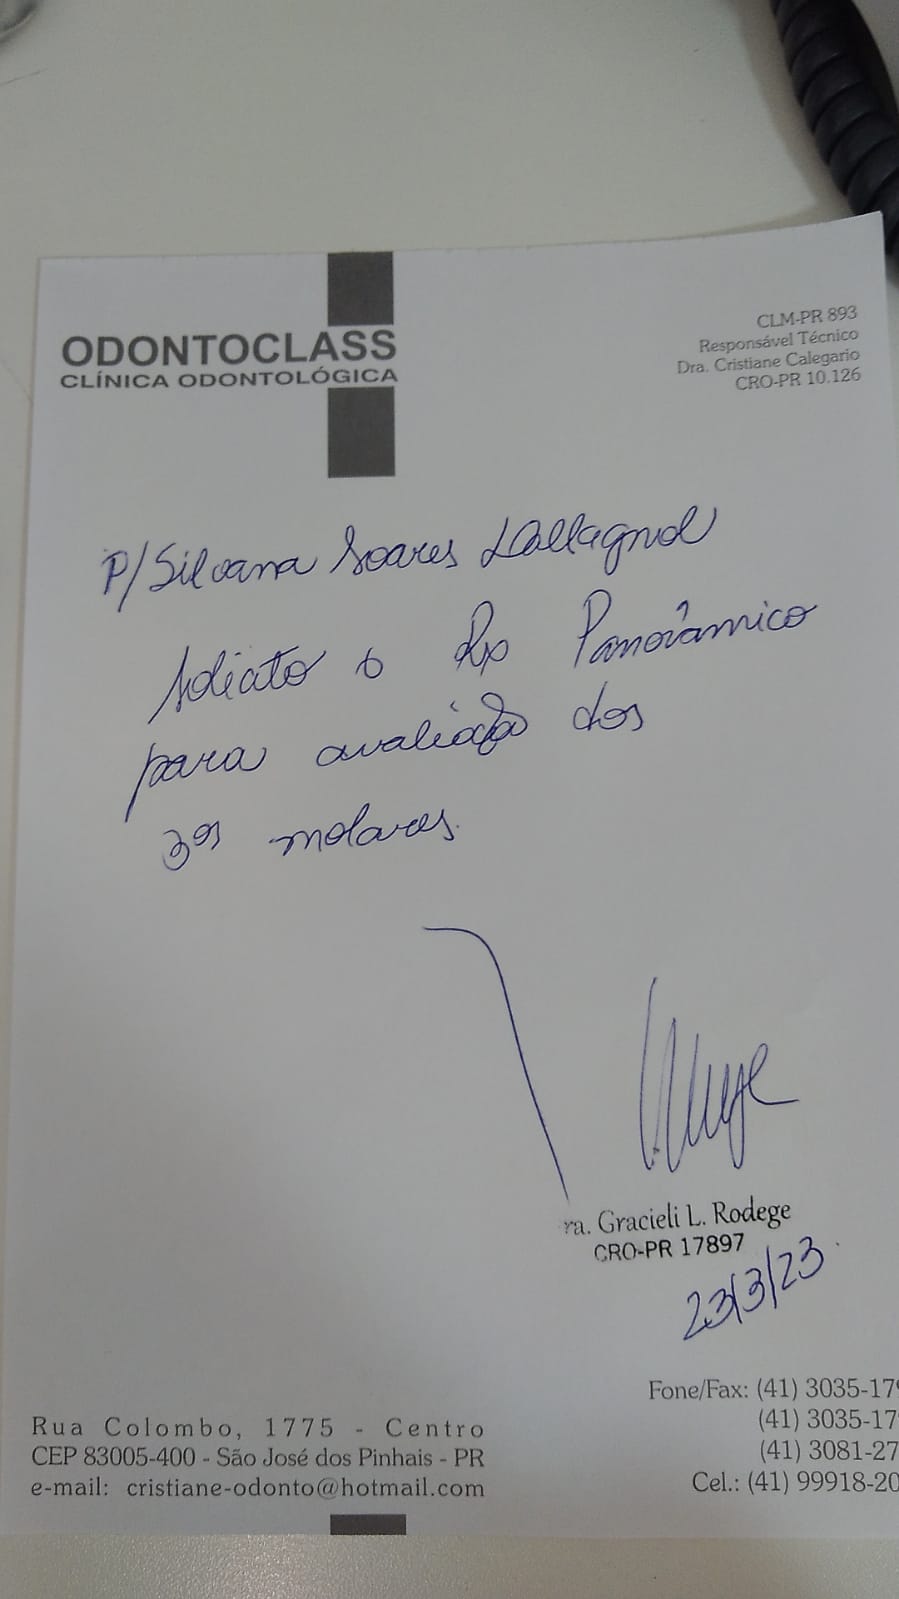 ODONTOCLASS
CLÍNICA ODONTOLÓGICA
CLM-PR 893
Responsável Técnico
Dra. Cristiane Calegario
CRO-PR 10.126
P/ Silvana Soares Dallagnol
Solicito o Rx Panorâmico
para avaliação dos
3ºs molares.
ra. Gracieli L. Rodege
CRO-PR 17897
23/3/23
Rua Colombo, 1775 - Centro
CEP 83005-400 - São José dos Pinhais - PR
e-mail: cristiane-odonto@hotmail.com
Fone/Fax: (41) 3035-179
(41) 3035-17
(41) 3081-27
Cel.: (41) 99918-20